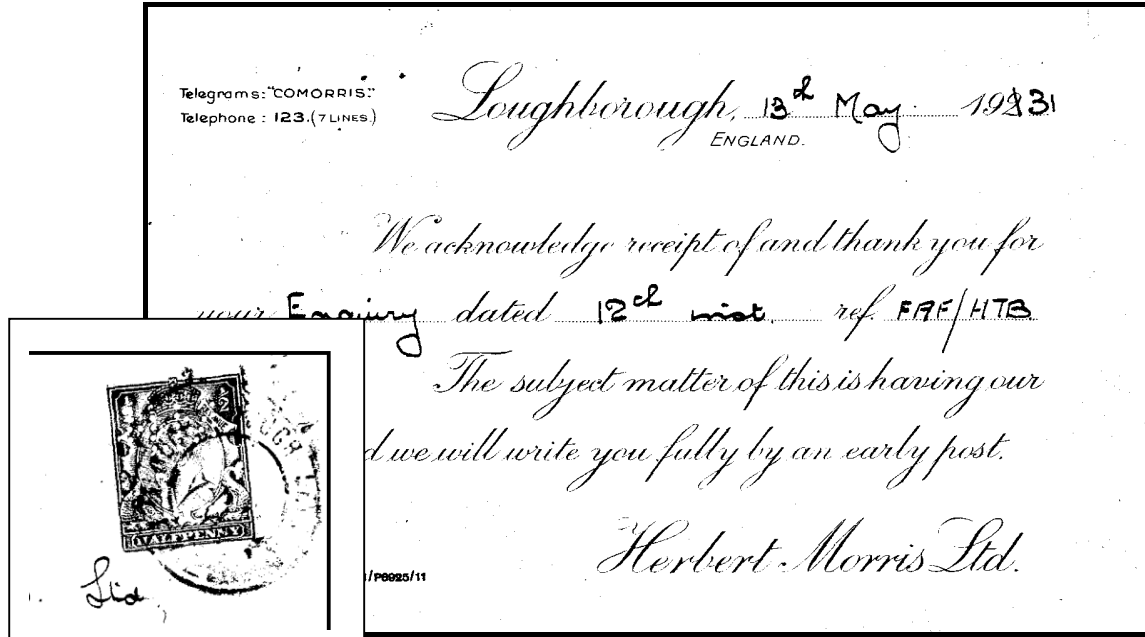 Telegrams: "COMORRIS."
Telephone: 123. (7 LINES.)
Loughborough, 13th May 1931
ENGLAND.
We acknowledge receipt of and thank you for
your Enquiry dated 12th inst. ref. FAF/HTB
The subject matter of this is having our
d we will write you fully by an early post.
Herbert Morris Ltd.
/P6925/11
HALFPENNY
Ltd,